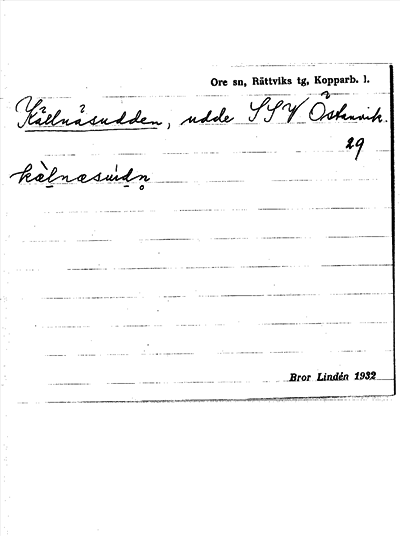 Ore sn, Rättviks tg, Kopparb. l.
Källnäsudden, udde SSV Östanvik.
29
kèlnæsùdn̥
Bror Lindén 1932